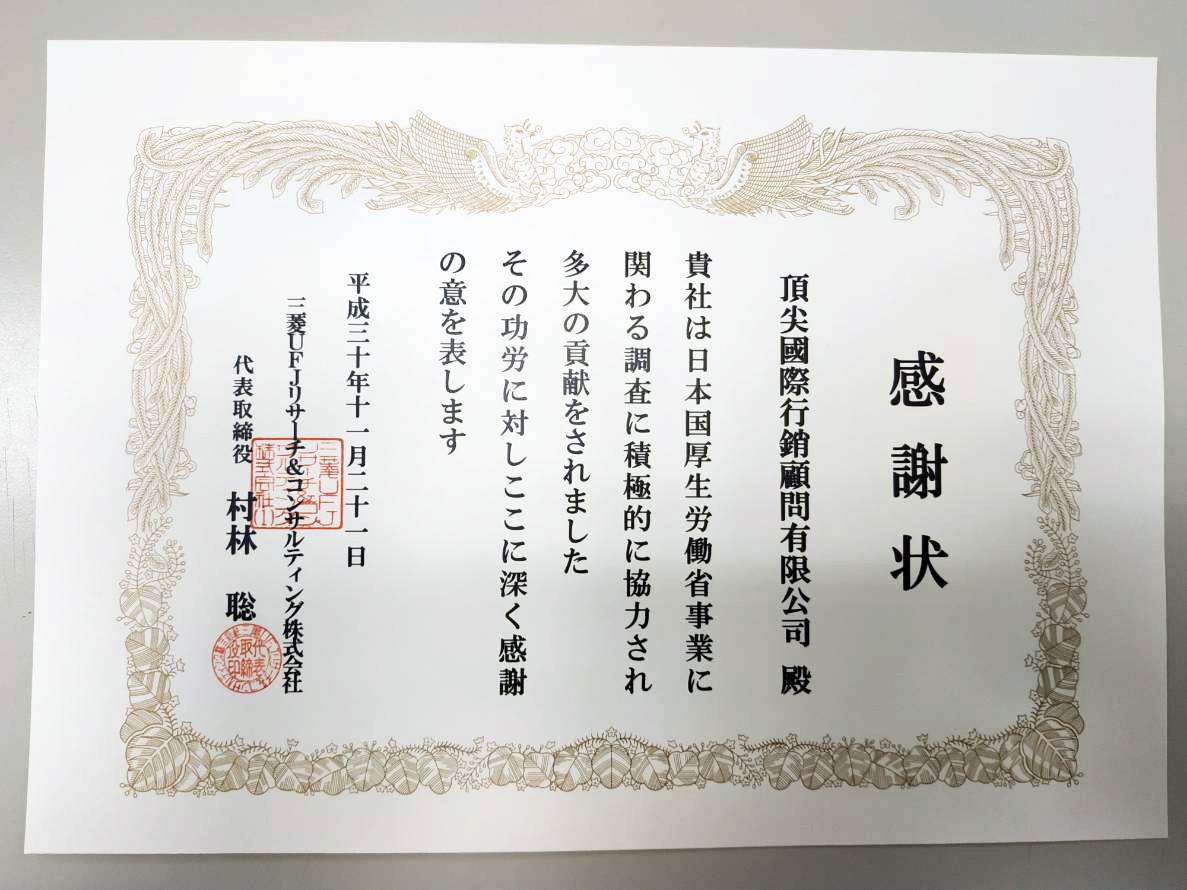 感謝状
頂尖國際行銷顧問有限公司 殿
貴社は日本国厚生労働省事業に
関わる調査に積極的に協力され
多大の貢献をされました
その功労に対しここに深く感謝
の意を表します
平成三十年十一月二十一日
三菱UFJリサーチ&コンサルティング株式会社
代表取締役 村林 聡